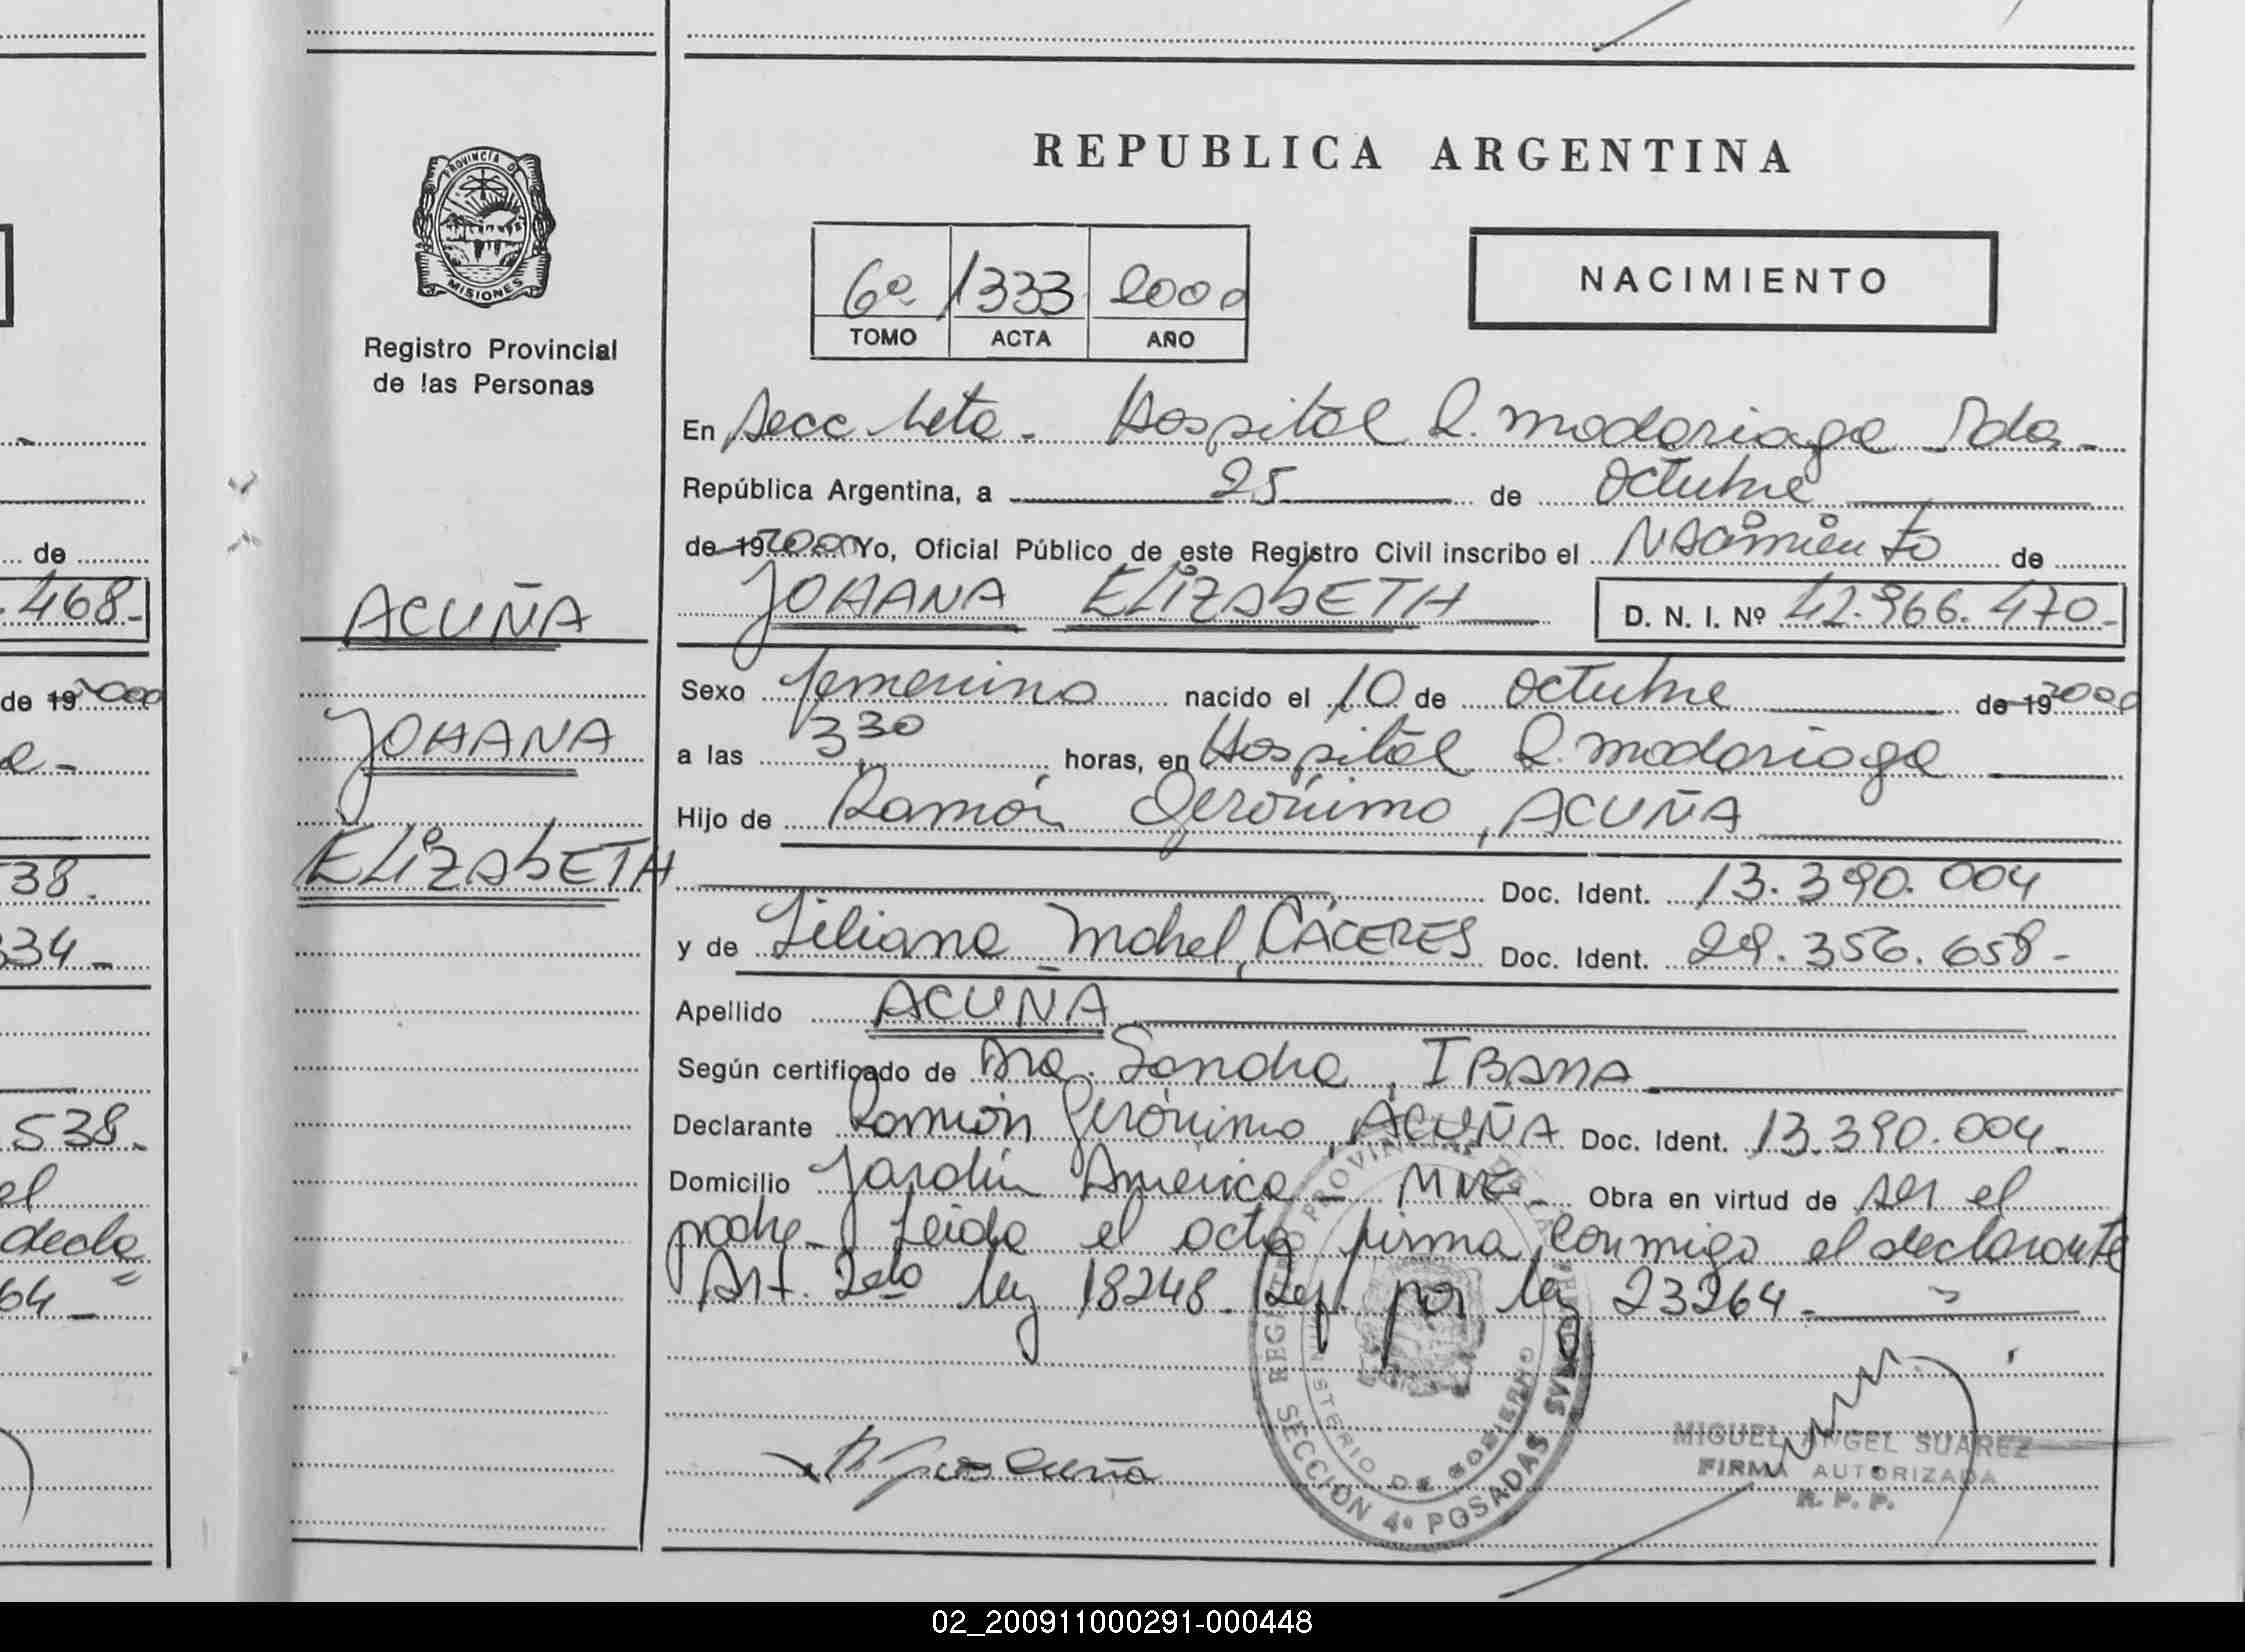 REPUBLICA ARGENTINA
PROVINCIA DE MISIONES
Registro Provincial
de las Personas
6º 1333 2000
TOMO ACTA AÑO
NACIMIENTO
En Secc 4ta - Hospital R. Madariaga Pdas -
República Argentina, a 25 de octubre
de 19 2000 Yo, Oficial Público de este Registro Civil inscribo el Nacimiento de
JOHANA ELIZAbETH D. N. I. Nº 42.966.470-
ACUÑA
JOHANA
ELIZAbETH
Sexo femenino nacido el 10 de octubre de 19 2000
a las 3 30 horas, en Hospital R. Madariaga
Hijo de Ramón Gerónimo, ACUÑA
Doc. Ident. 13.390.004
y de Liliana Mabel, CÁCERES Doc. Ident. 29.356.658-
Apellido ACUÑA
Según certificado de Dra. Sandra,
Declarante Ramón Gerónimo, ACUÑA Doc. Ident. 13.390.004-
Domicilio Jardín América - Obra en virtud de ser el
padre- Leida el acta firma conmigo el declarante
Art. 2do ley 18248. Ref. por ley 23264-
REGISTRO PROVINCIAL DE LAS PERSONAS
MINISTERIO DE GOBIERNO
SECCION 4ª POSADAS
MIGUEL ANGEL SUAREZ
FIRMA AUTORIZADA
R. P. P.
de
.468-
de 19 2000
38.
334-
538-
el
decla
64-
02_200911000291-000448